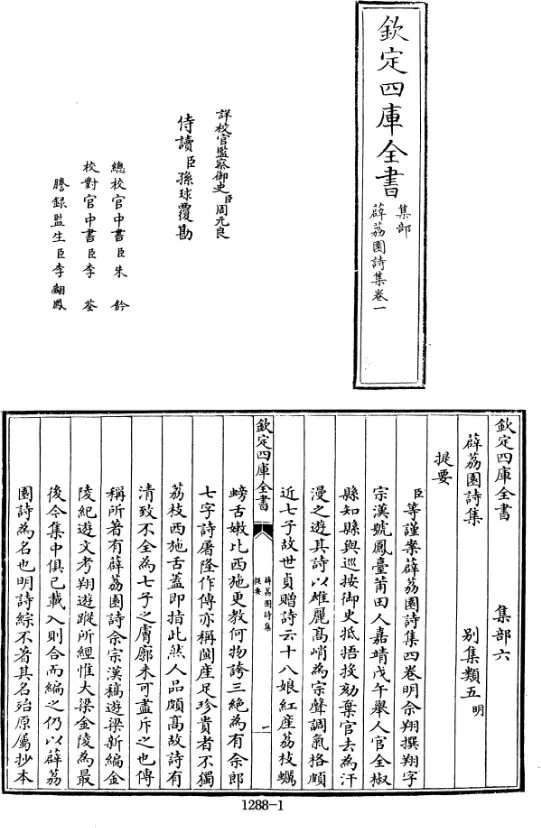 欽定四庫全書
集部
薜荔園詩集卷一
詳校官監察御史臣周元良
侍讀臣孫球覆勘
總校官中書臣朱鈐
校對官中書臣李荃
謄錄監生臣李翽鳳
欽定四庫全書 集部六
薜荔園詩集 別集類五明
提要
臣等謹案薜荔園詩集四卷明佘翔撰翔字
宗漢號鳳臺莆田人嘉靖戊午舉人官全椒
縣知縣與巡按御史抵捂投劾棄官去為汗
漫之遊其詩以雄麗高峭為宗聲調氣格頗
近七子故世貞贈詩云十八娘紅產荔枝蠣
欽定四庫全書
薜荔園詩集
提要
一
螃舌嫩比西施更教何物誇三絕為有佘郎
七字詩屠隆作傳亦稱閩產足珍貴者不獨
荔枝西施舌蓋即指此然人品頗高故詩有
清致不全為七子之膚廓未可盡斥之也傳
稱所著有薜荔園詩佘宗漢稿遊梁新編金
陵紀遊文考翔遊蹤所經惟大梁金陵為最
後今集中俱已載入則合而編之仍以薜荔
園詩為名也明詩綜不著其名殆原屬抄本
1288-1